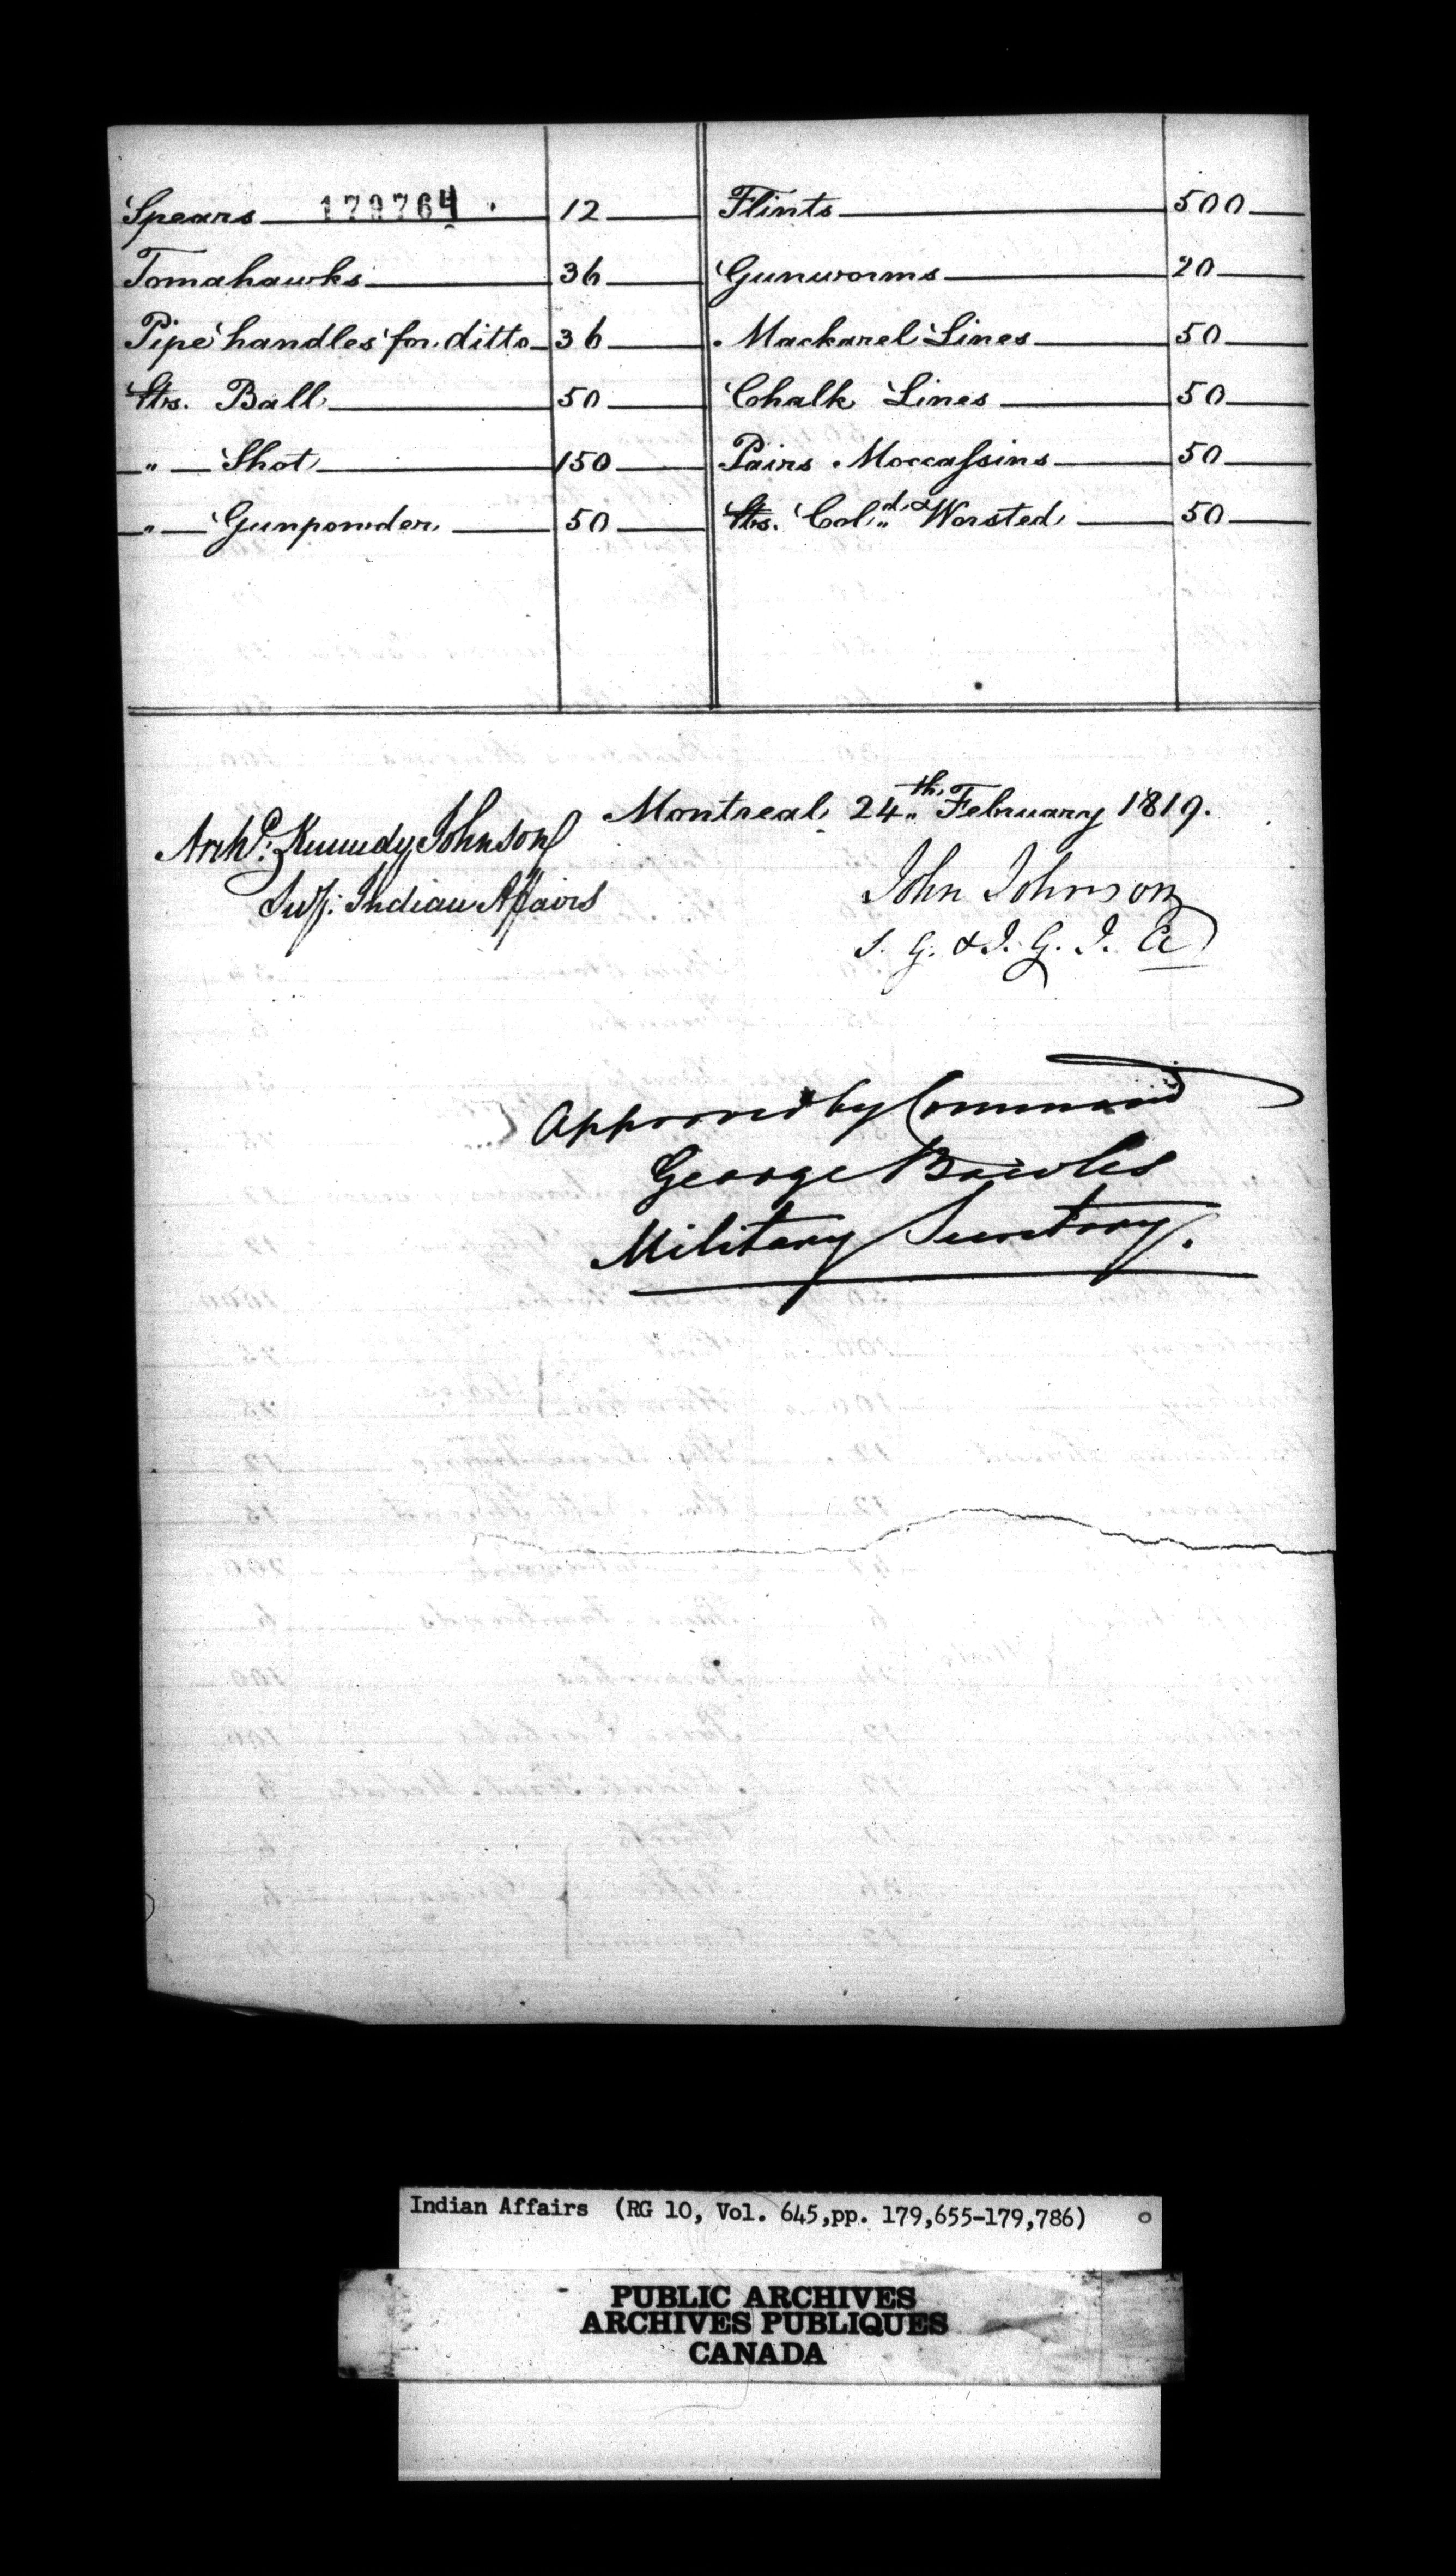 179764
Spears 12 Flints 500
Tomahawks 36 Gunworms 20
Pipe handles for ditto 36 Mackarel Lines 50
lbs. Ball 50 Chalk Lines 50
" Shot 150 Pairs Moccassins 50
" Gunpowder 50 lbs. Col.d Worsted 50
Montreal, 24th February 1819.
Archd. Kennedy Johnson
Indian Affairs
John Johnson
S. G. & I. G. I. A
Approved by Command
George Bowles
Military Secretary.
Indian Affairs (RG 10, Vol. 645, pp. 179,655-179,786)
PUBLIC ARCHIVES
ARCHIVES PUBLIQUES
CANADA